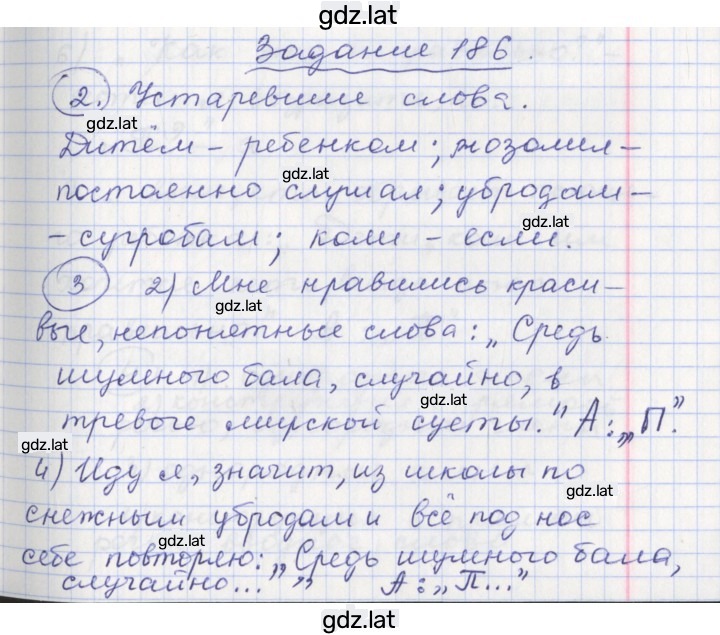 gdz.lat
Задание 186.
2. Устаревшие слова.
gdz.lat
Дитём – ребенком; мозолил –
gdz.lat
постоянно слушал; убродам –
gdz.lat
– сугробам; коли – если.
3 2) Мне нравились краси–
gdz.lat
вые, непонятные слова: „Средь
шумного бала, случайно, в
gdz.lat
тревоге мирской суеты." А: „П."
gdz.lat
4) Иду я, значит, из школы по
gdz.lat
снежным убродам и всё под нос
себе повторяю: „Средь шумного бала,
gdz.lat
случайно... " А: „П..."
gdz.lat